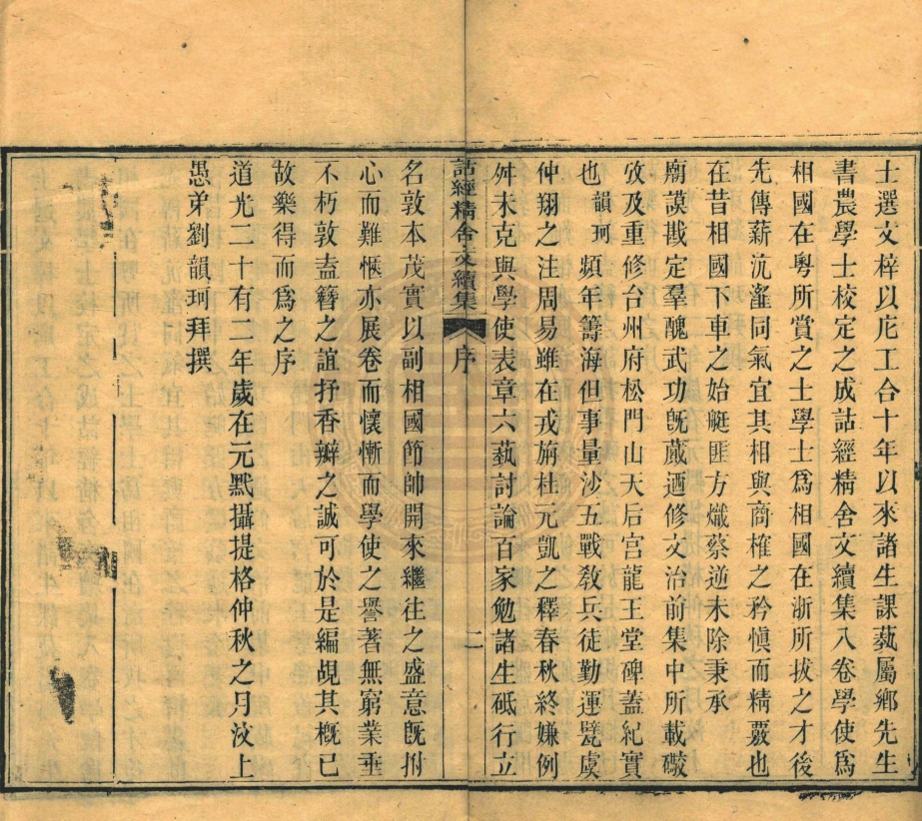 士選文梓以庀工合十年以來諸生課蓺屬鄉先生
書農學士校定之成詁經精舍文續集八卷學使爲
相國在粵所賞之士學士爲相國在浙所拔之才後
先傳薪沆瀣同氣宜其相與商榷之矜愼而精覈也
在昔相國下車之始艇匪方熾蔡逆未除秉承
廟謨戡定羣醜武功旣蕆迺修文治前集中所載礮
攷及重修台州府松門山天后宫龍王堂碑蓋紀實
也韻珂頻年籌海但事量沙五戰敎兵徒勤運甓虞
仲翔之注周易雖在戎旃杜元凱之釋春秋終嫌例
舛未克與學使表章六蓺討論百家勉諸生砥行立
詁經精舍文續集 序 二
名敦本茂實以副相國節帥開來繼往之盛意旣拊
心而難愜亦展卷而懷慚而學使之譽著無窮業垂
不朽敦盍簪之誼抒香瓣之誠可於是編覘其槪已
故樂得而爲之序
道光二十有二年歲在元黓攝提格仲秋之月汶上
愚弟劉韻珂拜撰